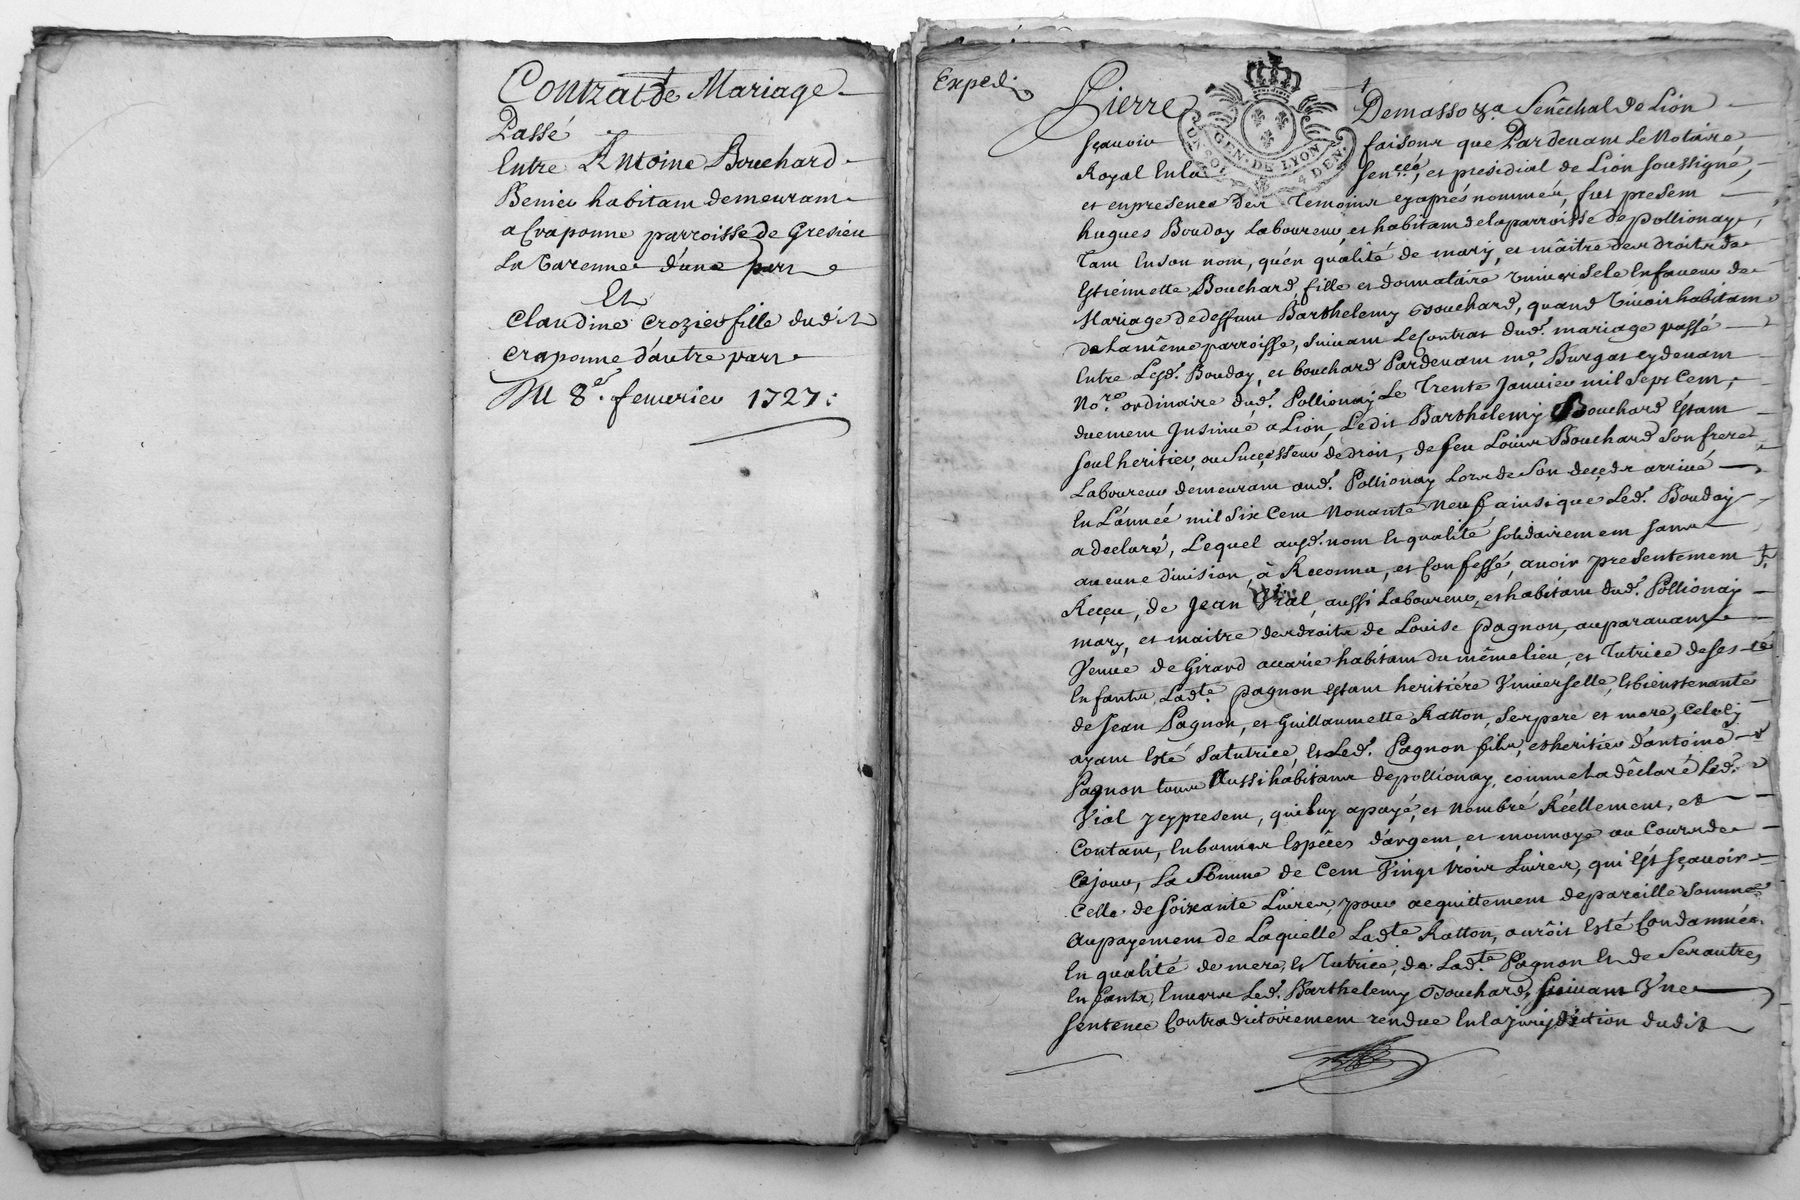 Contrat de Mariage
Passé
Entre Antoine Bouchard
Benier habitant demeurant
a Craponne parroisse de Gresieu
La Varenne d'une part
Et
Claudine Crozier fille dudit
Craponne d'autre part
Du 8e. feuvrier 1727:
Exped.
Pierre Demasso &.a Senêchal de Lion
sçavoir faisons que Pardevant Le Notaire
Royal En la Sen.ceé, et presidial de Lion soussigné,
et en presence des Temoins cy aprés nommés, fut present
hugues Bouday Laboureur et habitant de la parroisse de pollionay,
Tant En son nom, qu'en qualité de mary, et maître des droits de
Estiennette Bouchard, fille et donnataire Universelle En faveur de
Mariage de deffunt Barthelemy Bouchard, quand Vivoit habitant
de La même parroisse, suivant Le Contrat dud. mariage passé
Entre Lesd. Bouday, et bouchard Pardevant me. Burgat cy devant
No.re ordinaire dud. Pollionay Le Trente Janvier mil Sept Cent,
duement Insinué a Lion, Ledit Barthelemy Bouchard Estant
seul heritier, ou Sucçesseur de droit, de feu Louis Bouchard Son frere
Laboureur demeurant aud. Pollionay Lors de Son deçeds arrivé
En L'année mil Six Cent Nonante Neuf ainsi que Led. Bouday
a declaré, Lequel ausd. nom et qualité solidairement sans
aucune division, à Reconnu, et Confessé, avoir presentement
Reçeu, de Jean Vial, aussi Laboureur, et habitant dud. Pollionay
mary, et maitre des droits de Louise Pagnon, auparavant
Veuve de Girard accarie habitant du même lieu, et Tutrice de ses
Enfants, Lad.te Pagnon Estant heritiére Universelle, Et bienstenante
de Jean Pagnon, et Guillaumette Ratton, Ses pere et mere, Celle cy
ayant Esté Sa tutrice, et Led. Pagnon fils, et heritier d'antoine
Pagnon tous Aussi habitans de pollionay, comme La dêclaré Led.
Vial y cy present, qui luy a payé, et Nombré Réellement, et
Contant, En bonnes Espêces d'argent, et monnoye au Cours de
Ce jour, La Somme de Cent Vingt trois Livres, qui Est sçavoir
Celle de soixante Livres, pour acquittement de pareille Somme
Au payement de Laquelle Lad.te Ratton, auroit Esté Condamnée
En qualité de mere, et Tutrice, de Lad.te Pagnon et de Ses autres
Enfants, Envers Led. Barthelemy Bouchard, suivant Une
sentence Contradictoirement rendue En la jurisdiction dudit
GEN. DE LYON
UN SOL 4 DEN.